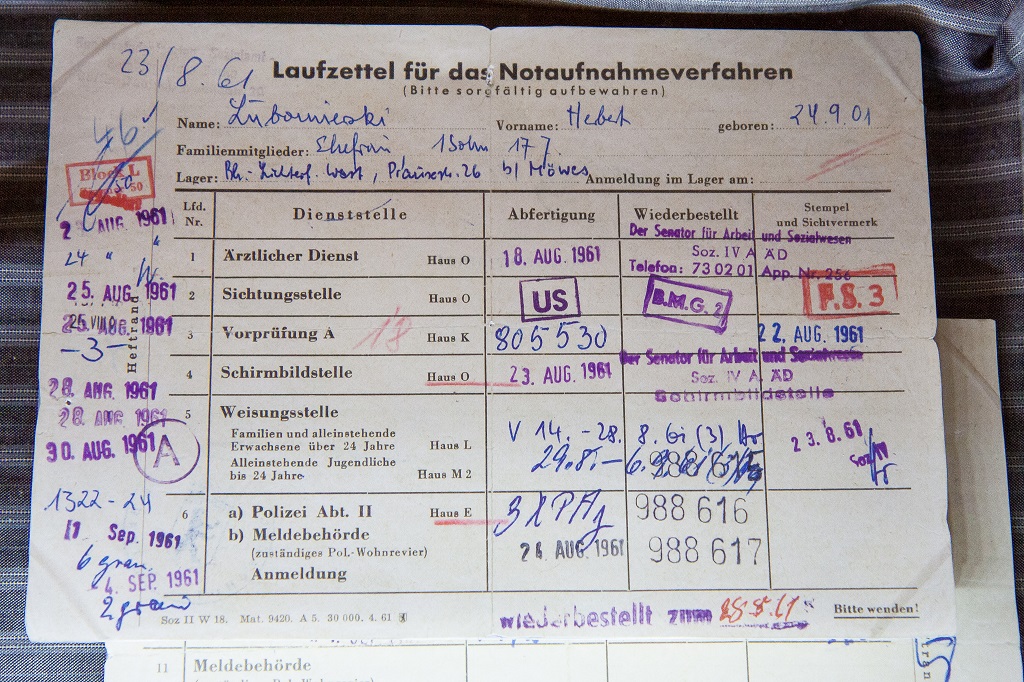 23/8.61
Laufzettel für das Notaufnahmeverfahren
(Bitte sorgfältig aufbewahren)
46
Name: Vorname: geboren: 24.9.01
Familienmitglieder: Ehefrau 1 Sohn 17 J.
Lager: Bln. Lichterf. West, 26 b/ Möwes Anmeldung im Lager am:
Block L
50
Lfd. Nr. Dienststelle Abfertigung Wiederbestellt Stempel und Sichtvermerk
AUG. 1961
24 "
25. AUG. 1961
AUG. 1961
-3-
28. AUG. 1961
28. AUG 1961
30. AUG. 1961
A
1322-24
1 Sep. 1961
4. SEP. 1961
Heftrand
Der Senator für Arbeit und Sozialwesen
Soz. IV A ÄD
Telefon: 73 02 01 App. Nr. 256
1 Ärztlicher Dienst Haus O 18. AUG. 1961
2 Sichtungsstelle Haus O US B.M.G. 2 F.S. 3
3 Vorprüfung A 18 Haus K 805530 22. AUG. 1961
Der Senator für Arbeit und Sozialwesen
Soz. IV A ÄD
Schirmbildstelle
4 Schirmbildstelle Haus O 23. AUG. 1961
5 Weisungsstelle
Familien und alleinstehende
Erwachsene über 24 Jahre Haus L V 14.-28. 8. 23.8.61
Alleinstehende Jugendliche
bis 24 Jahre Haus M 2 29.8.-
6 a) Polizei Abt. II Haus E 988 616
b) Meldebehörde 24 AUG. 1961 988 617
(zuständiges Pol.-Wohnrevier)
Anmeldung
Soz II W 18. Mat. 9420. A 5. 30 000. 4. 61 wiederbestellt zum Bitte wenden!
11 Meldebehörde